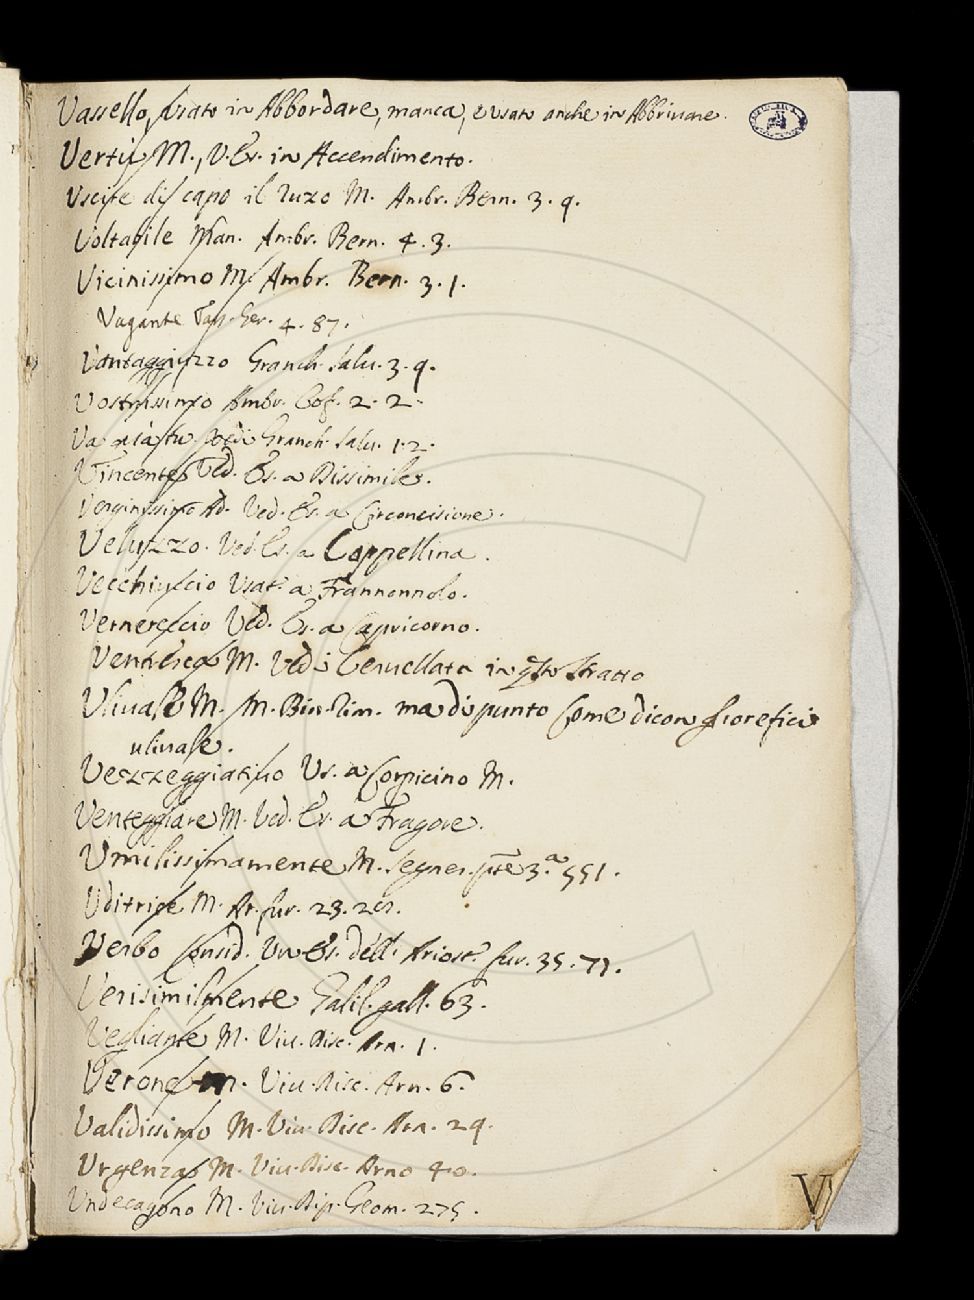 Vassello, Usato in Abbordare, manca, e usato anche in Abbrivare.
Vertù M., V. Es. in Accendimento.
Uscire di capo il ruzo M. Ambr. Bern. 3. 9.
Voltabile Man. Ambr. Bern. 4. 3.
Vicinissimo M. Ambr. Bern. 3. 1.
Vagante Tass. Ger. 4. 87.
Vantagguzzo Granch. Salv. 3. 9.
Vostrissimo Ambr. Cof. 2. 2.
Va Granch. Salv. 1. 2.
Vincente Ved. Es. a Dissimile.
Verginissimo Ad. Ved. Es. a Circoncisione.
Veluzzo. Ved. Es. a Coppellina.
Vecchiuccio Usat. a
Vernereccio Ved. Es. a Capricorno.
Ventresca M. Vedi Cervellata in qsto stratto
Ulivale M. M. Bin. rim. ma di punto come dicon fiorefici
ulivale.
Vezzeggiativo Us. a Corpicino M.
Venteggiare M. Ved. Es. a Fragore.
Umilissimamente M. Segner. pte 3.a 551.
Uditrice M. Ar. fur. 23.
Verbo consid. Un Es. dell' Ariost. fur. 35. 71.
Verisimilmente Galil. gall. 63.
Vegliante M. Viv. Disc. Arn. 1.
Verone M. Viv. Disc. Arn. 6.
Validissimo M. Viv. Disc. Arn. 29.
Urgenza M. Viv. Disc. Arno 40.
Undecagono M. Viv. Geom. 275.
V